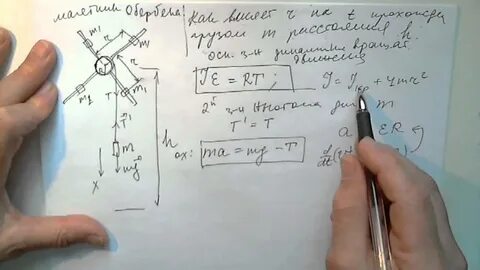 маятник Обербека
Как влияет r на t прохожден
грузом m расстояния h.
осн. з-н динамики вращат.
движения
Jε = RT; J = J кр + 4mr²
2й з-н Ньютона для m
T' = T
a εR
ox: ma = mg - T
d/dt(
m₁
r
m₁
r
m₁
m₁
T
T'
m
mg
x
h